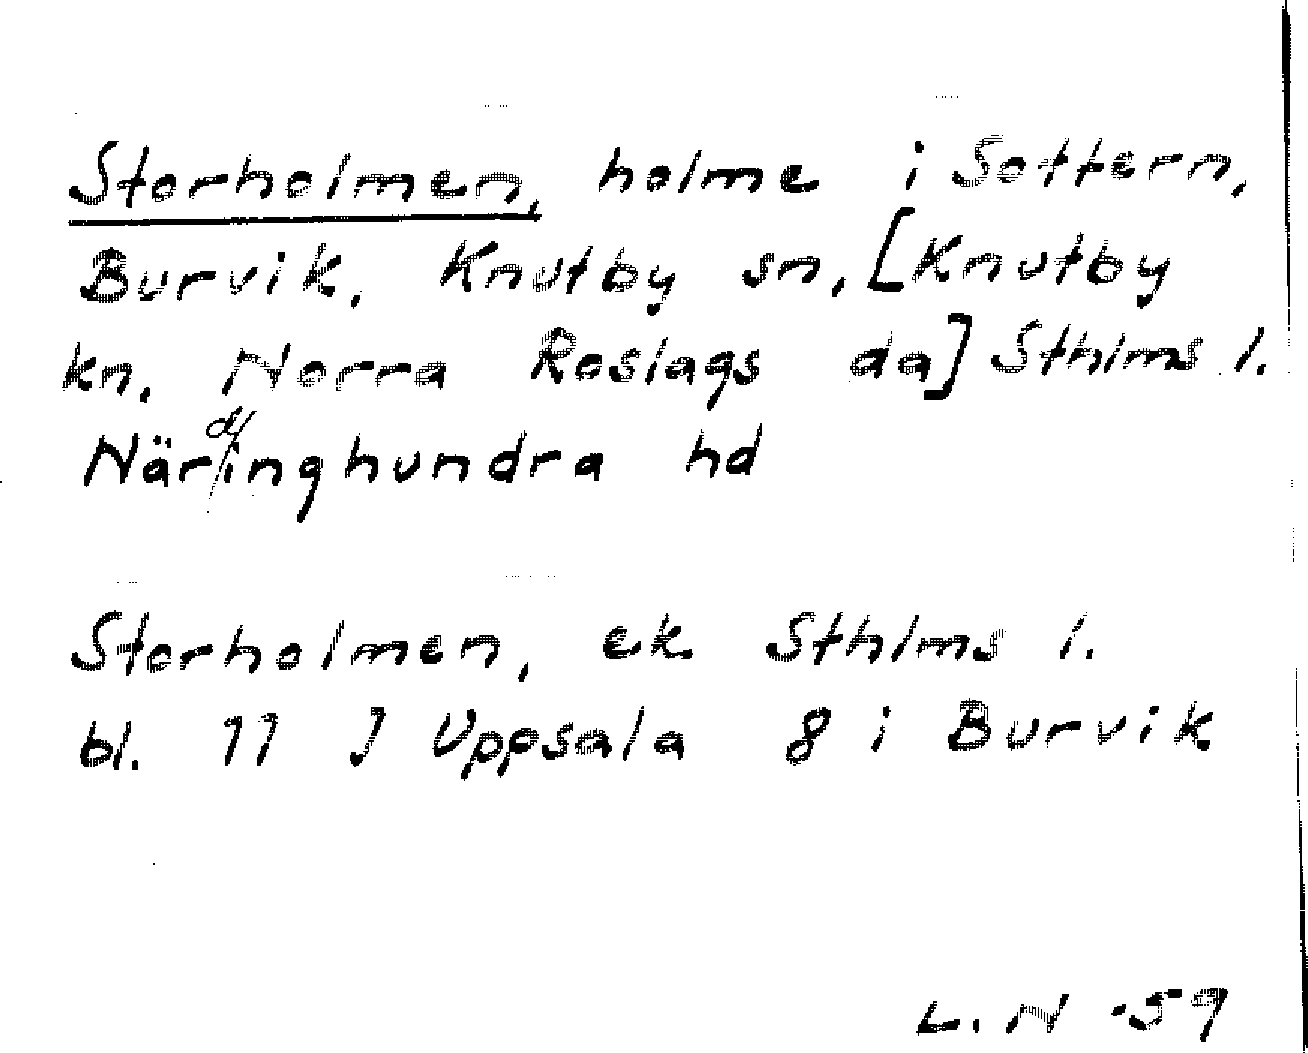 Storholmen, holme i Sottern,
Burvik, Knutby sn, [Knutby
kn. Norra Roslags da] Sthlms l.
Närdinghundra hd
Storholmen, ek Sthlms l.
bl. 11 J Uppsala 8 i Burvik
L. N -59